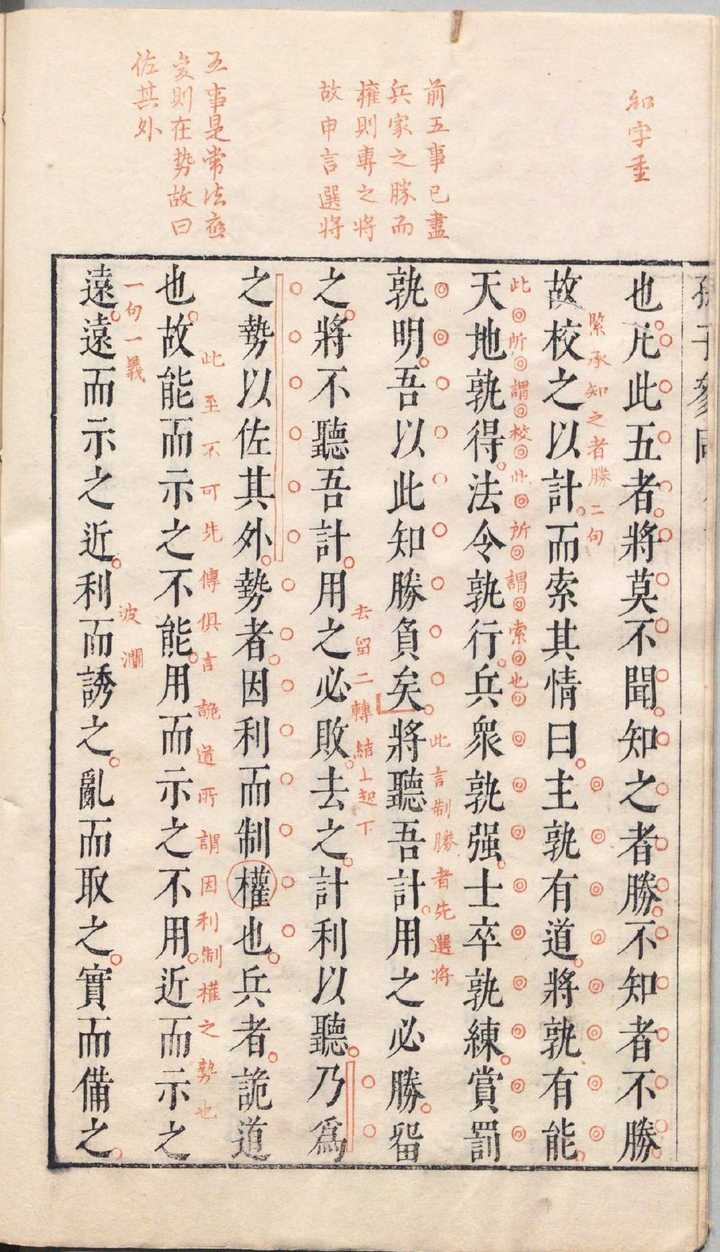 知字重
前五事已盡
兵家之勝而
權則專之將
故申言選將
五事是常法應
變則在勢故曰
佐其外
孫子參同
也凡此五者將莫不聞知之者勝不知者不勝
緊承知之者勝二句
故校之以計而索其情曰主孰有道將孰有能
此所謂校此所謂索也
天地孰得法令孰行兵衆孰强士卒孰練賞罰
此言制勝者先選將
孰明吾以此知勝負矣將聽吾計用之必勝留
去留二轉結上起下
之將不聽吾計用之必敗去之計利以聽乃爲
之勢以佐其外勢者因利而制權也兵者詭道
此至不可先傳俱言詭道所謂因利制權之勢也
也故能而示之不能用而示之不用近而示之
一句一義
波瀾
遠遠而示之近利而誘之亂而取之實而備之